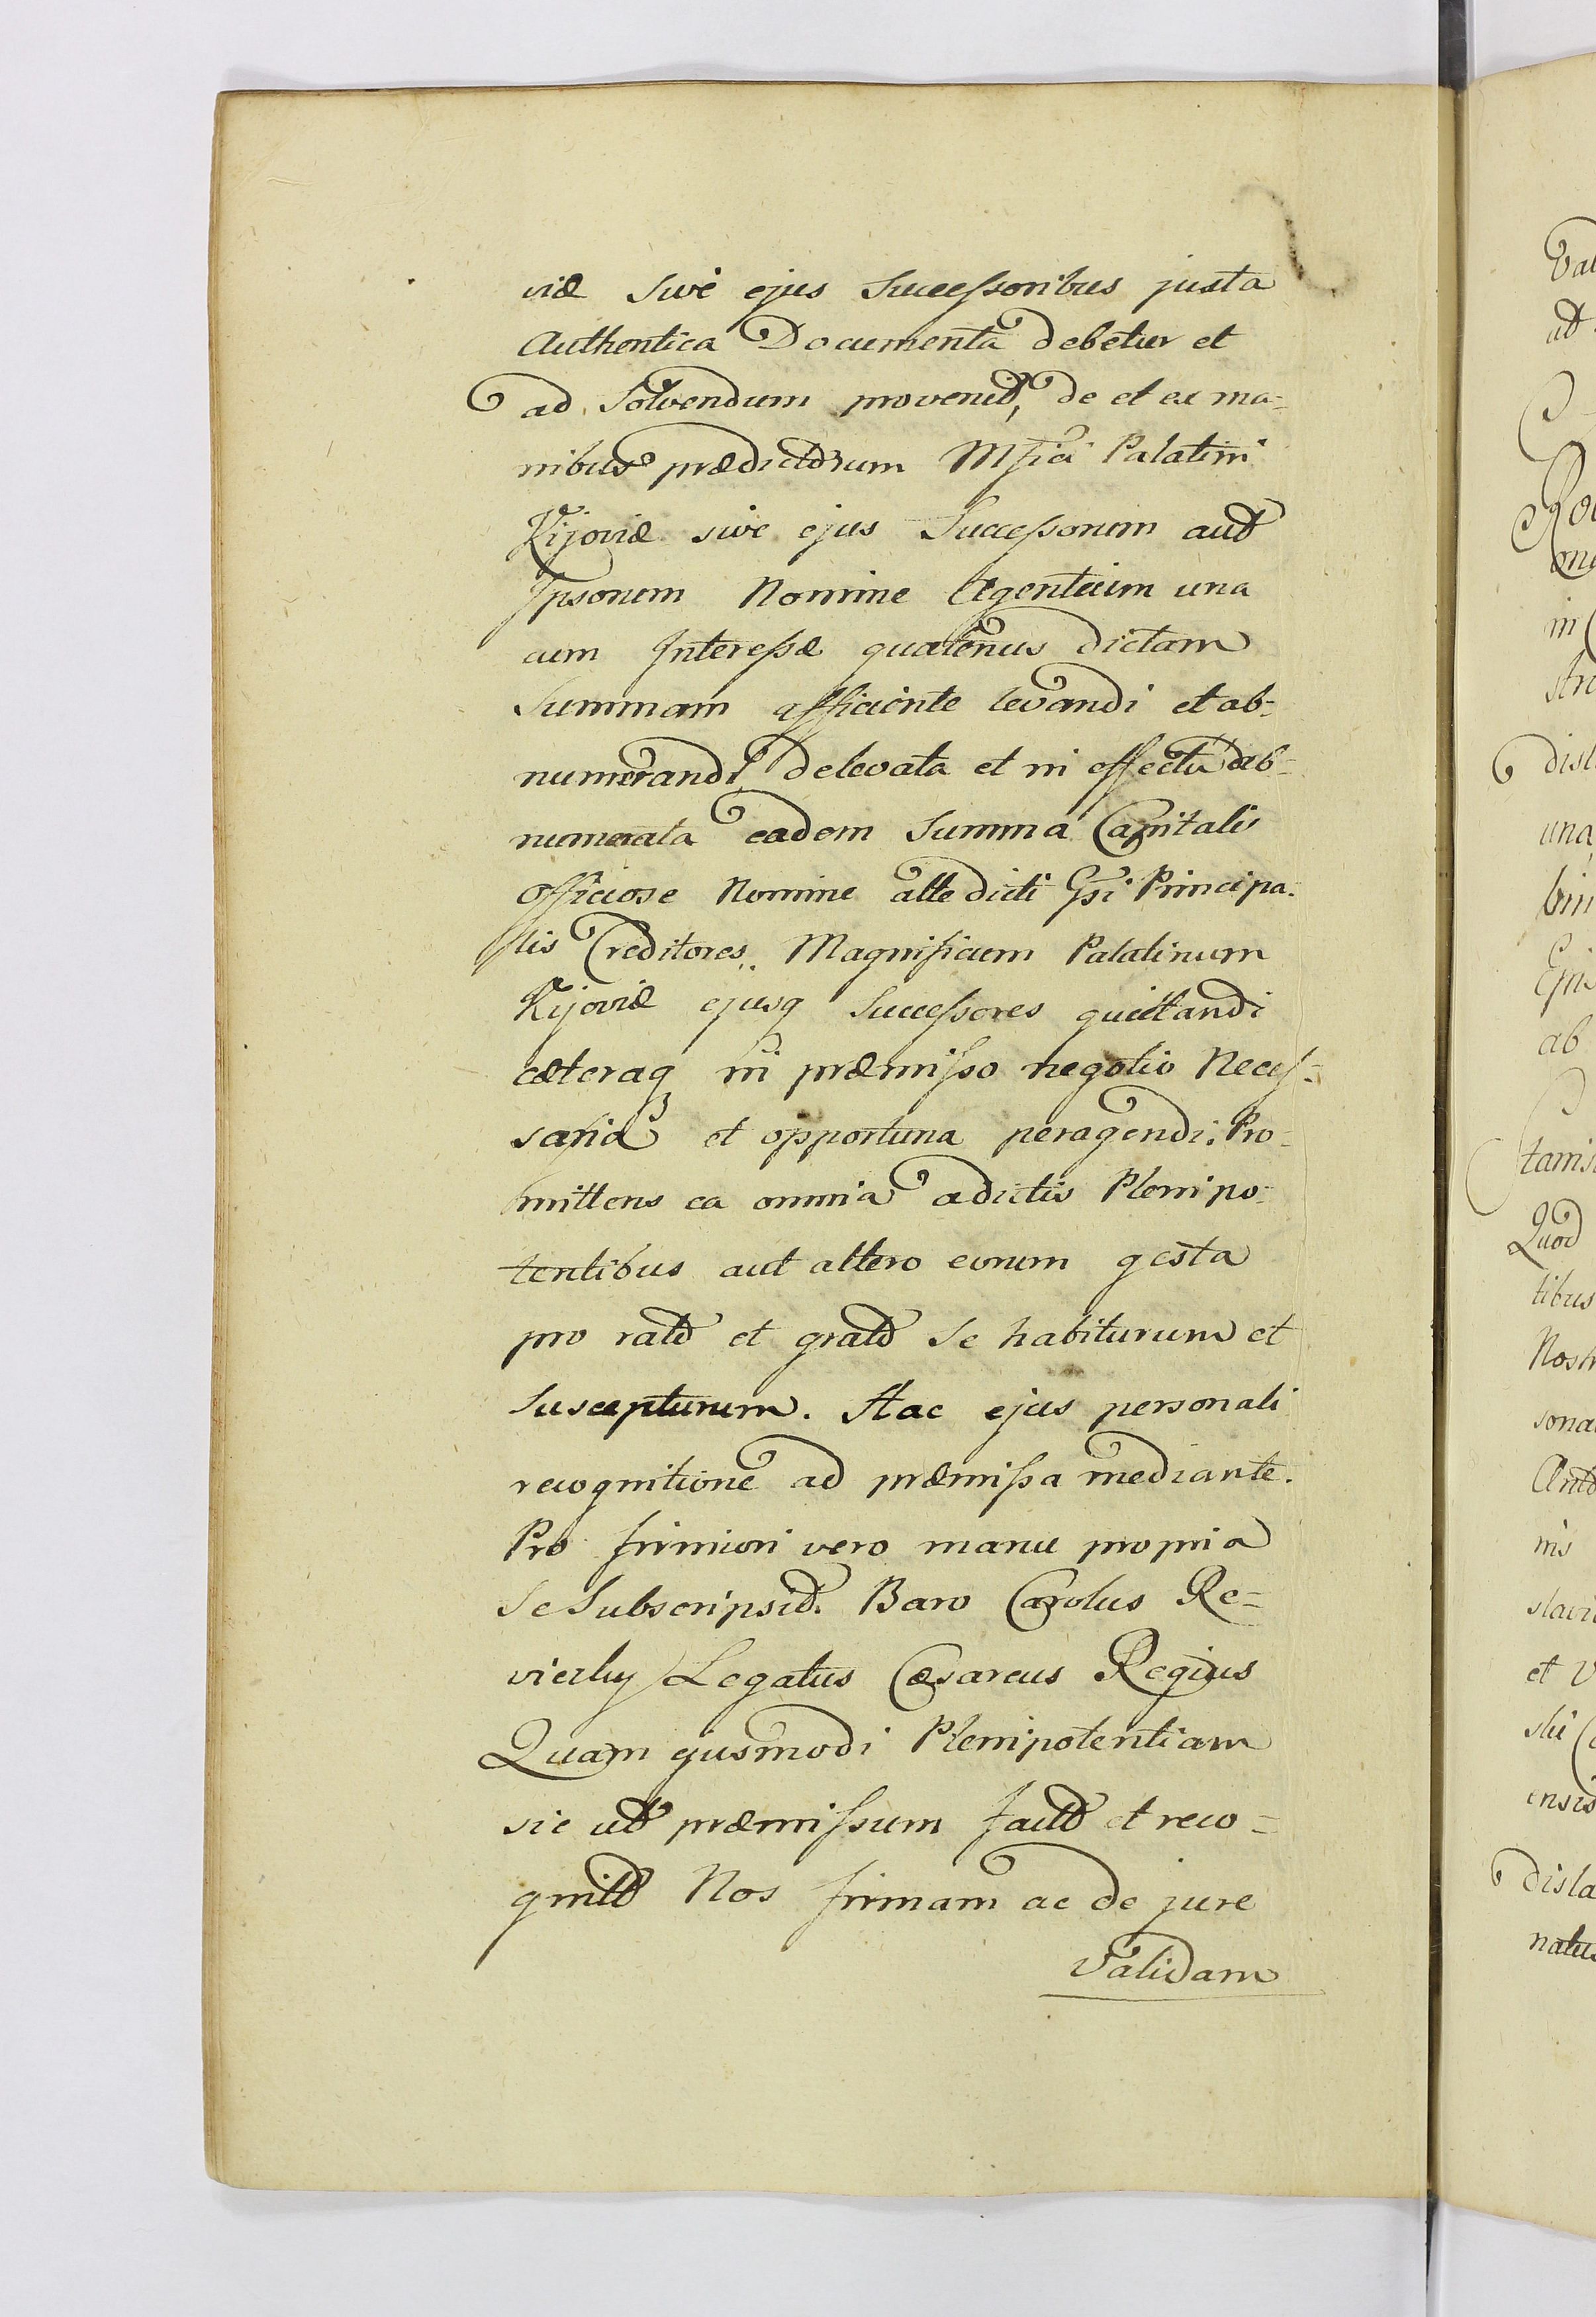 viæ sive ejus Successoribus justa
Authentica Documenta debetur et
ad Solvendum provenit, de et ex ma=
nibus prædictorum Mfici Palatini
Kijoviæ sive ejus Successorum aut
Ipsorum Nomine Agentium una
cum Interesse quatenus dictam
Summam afficiente levandi et ab=
numerandi, de levata et in effectu ab=
numerata eadem Summa Capitali
Officiose Nomine alte dicti Gsi Principa=
lis Creditores Magnificum Palatinum
Kijoviæ ejusq Successores quietandi
cæteraq in præmisso negotio Neces=
saria et opportuna peragendi. Pro=
mittens ea omnia a dictis Plenipo=
tentibus aut altero eorum gesta
pro rato et grato se habiturum et
Suscepturum. Hac ejus personali
recognitione ad præmissa mediante.
Pro firmiori vero manu propria
se Subscripsit. Baro Carolus Re=
viczky Legatus Cæsareus Regius
Quam ejusmodi Plenipotentiam
sic ut præmissum facto et reco=
gnito Nos firmam ac de jure
Validam